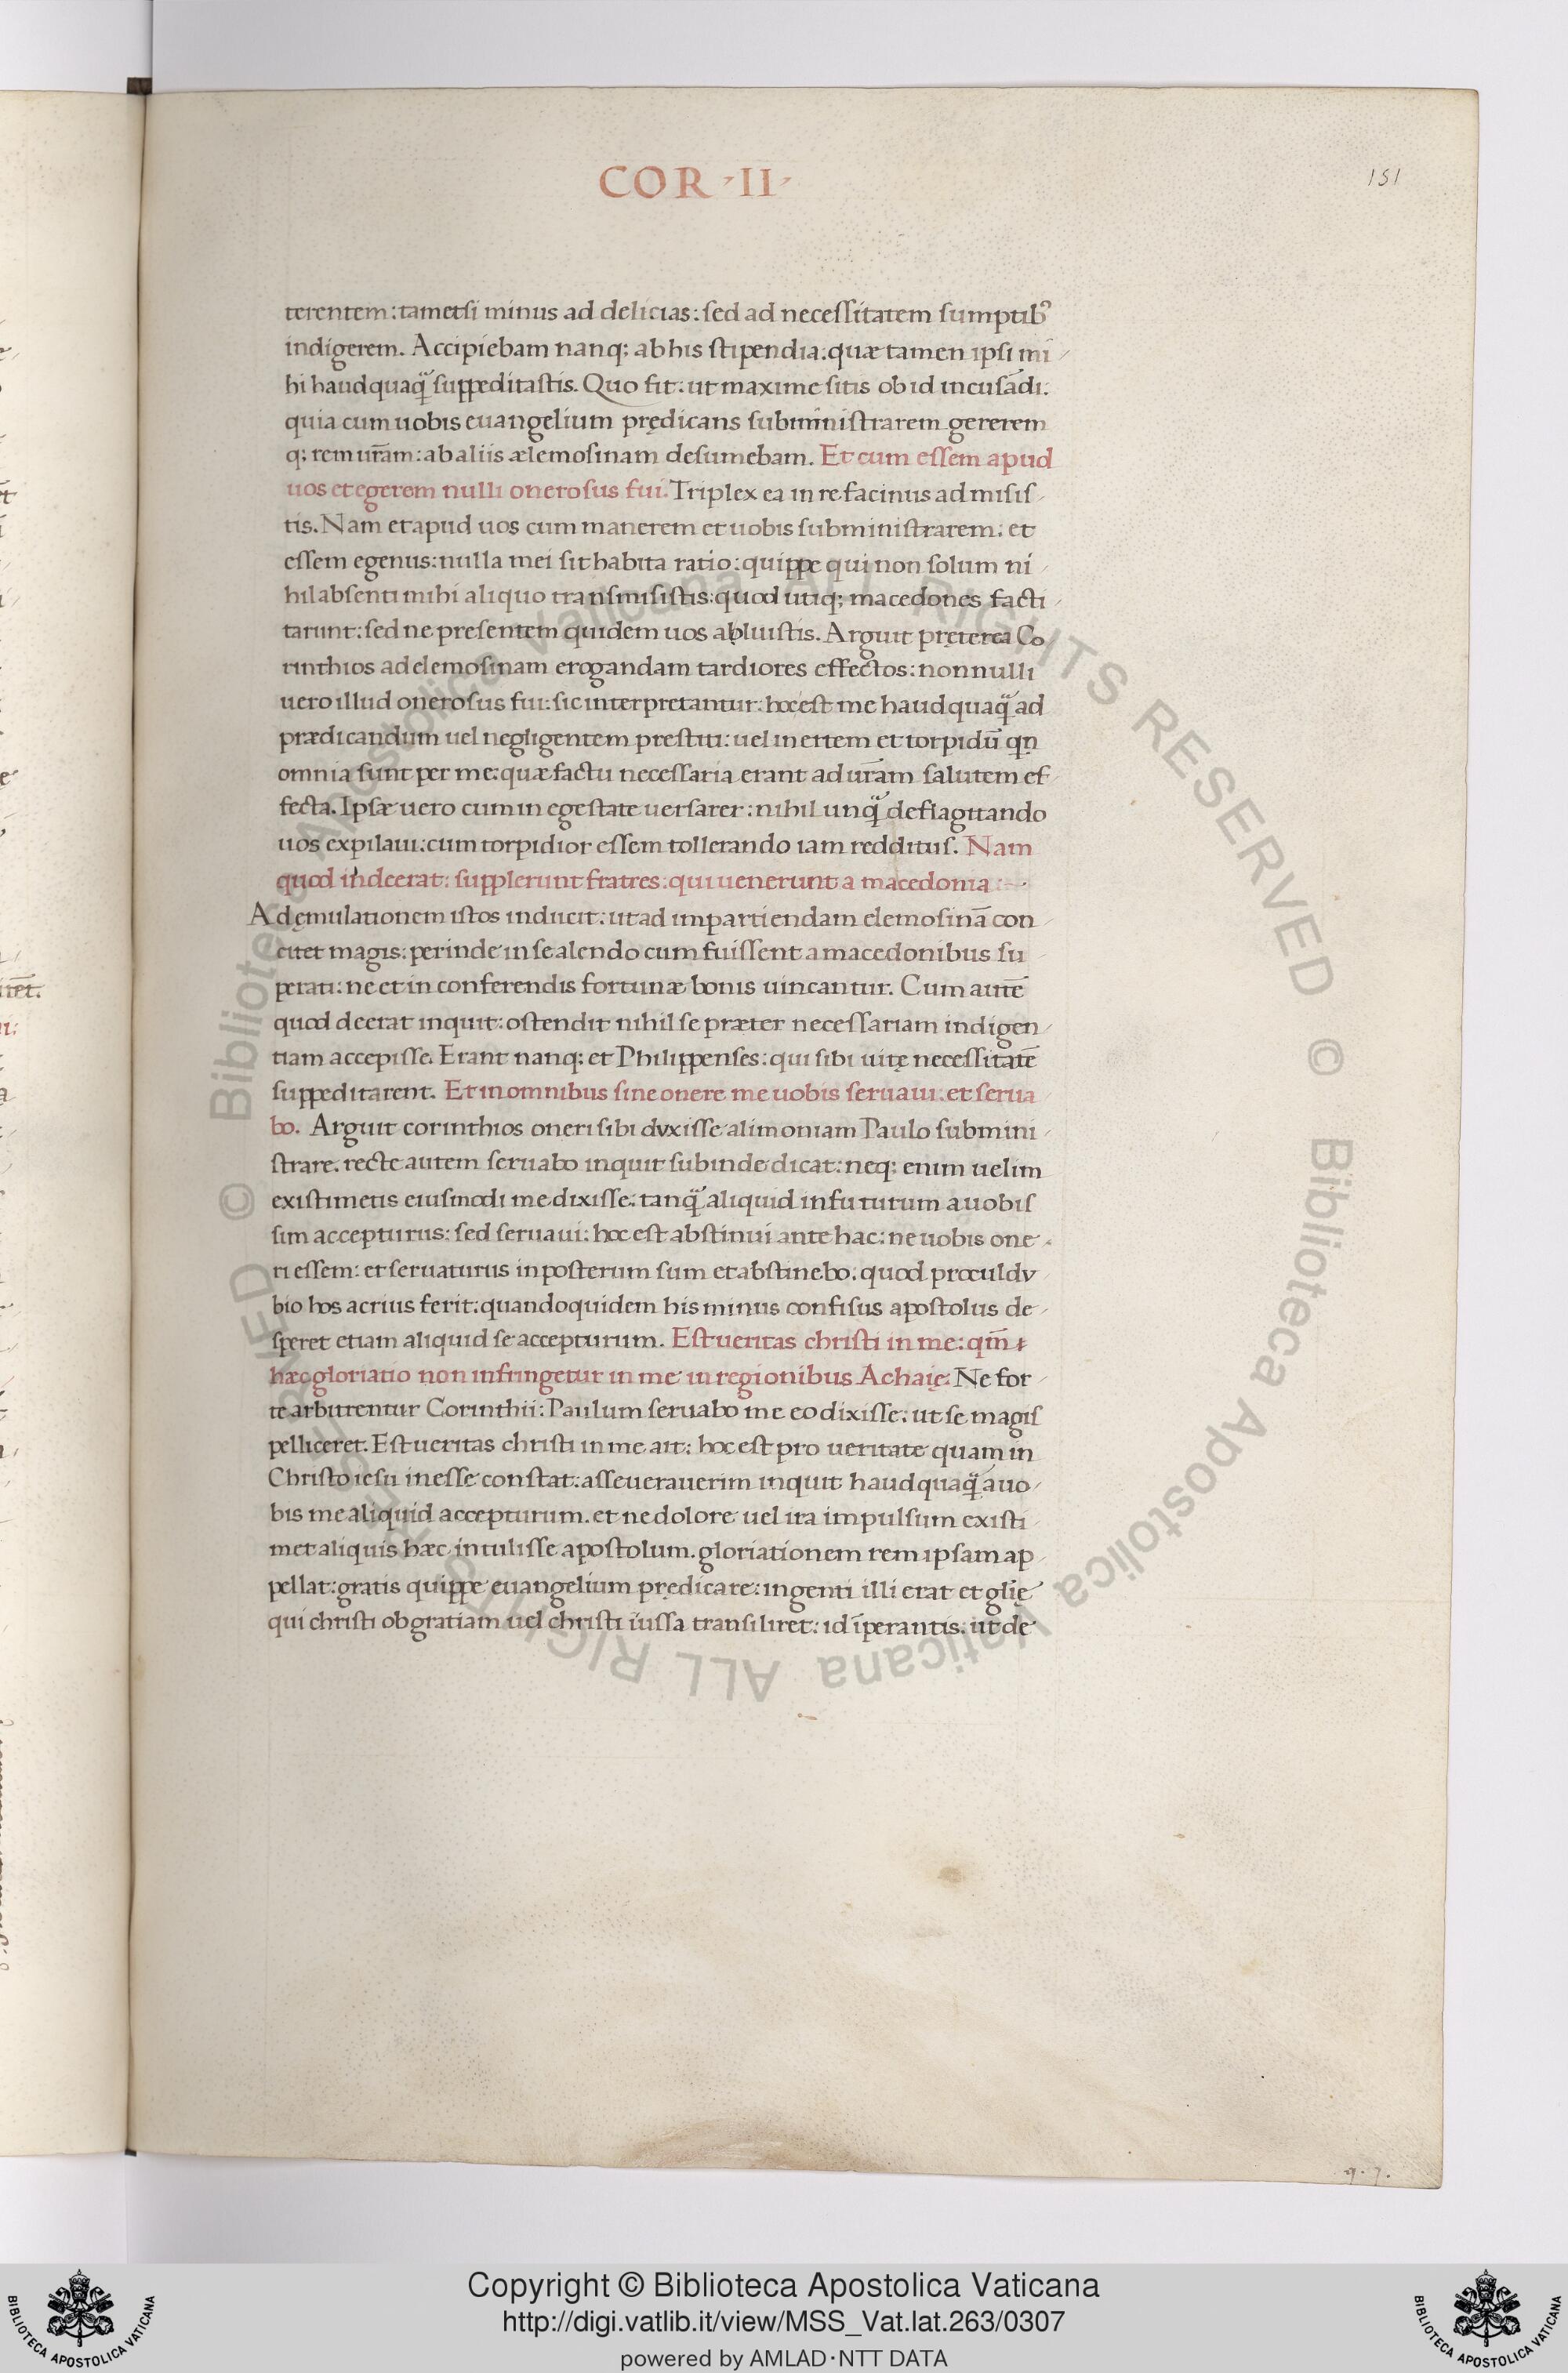 COR · II ·
151
terentem: tametsi minus ad delicias: sed ad necessitatem sumptibꝰ
indigerem. Accipiebam nanq; ab his stipendia: quæ tamen ipsi mi
hi haudquaq̈ suppeditastis. Quo fit: ut maxime sitis ob id incusādi:
quia cum uobis euangelium prędicans subministrarem gererem
q; rem ur̃am: ab aliis ælemosinam desumebam. Et cum essem apud
uos et egerem nulli onerosus fui. Triplex ea in re facinus admisis
tis. Nam et apud uos cum manerem et uobis subministrarem: et
essem egenus: nulla mei sit habita ratio: quippe qui non solum ni
hil absenti mihi aliquo transmisistis: quod utiq; macedones facti
tarunt: sed ne presentem quidem uos abluistis. Arguit pręterea Co
rinthios ad elemosinam erogandam tardiores effectos: nonnulli
uero illud onerosus fui: sic interpretantur: hoc est me haudquaq̈ ad
prædicandum uel negligentem prestiti: uel inertem et torpidū qn̄
omnia sunt per me: quæ factu necessaria erant ad ur̃am salutem ef
fecta. Ipsæ uero cum in egestate uersarer: nihil unq̈ deflagitando
uos expilaui: cum torpidior essem tollerando iam redditus. Nam
quod indeerat: supplerunt fratres: qui uenerunt a macedonia
Ad ęmulationem istos inducit: ut ad impartiendam elemosinā con
citet magis: perinde in se alendo cum fuissent a macedonibus su
perati: ne et in conferendis fortunæ bonis uincantur. Cum autē
quod deerat inquit: ostendit nihil se præter necessariam indigen
tiam accepisse. Erant nanq; et Philippenses: qui sibi uitę necessitatē
suppeditarent. Et in omnibus sine onere me uobis seruaui: et serua
bo. Arguit corinthios oneri sibi dvxisse alimoniam Paulo submini
strare. recte autem seruabo inquit subinde dicat: neq; enim uelim
existimetis eiusmodi me dixisse: tanq̈ aliquid in futurum a uobis
sim accepturus: sed seruaui: hoc est abstinui ante hac: ne uobis one
ri essem: et seruaturus in posterum sum et abstinebo: quod procul dv
bio hos acrius ferit: quandoquidem his minus confisus apostolus de
speret etiam aliquid se accepturum. Est ueritas christi in me: qm̄
hæc gloriatio non infringetur in me in regionibus Achaię. Ne for
te arbitrentur Corinthii: Paulum seruabo me eo dixisse: ut se magis
pelliceret. Est ueritas christi in me ait: hoc est pro ueritate quam in
Christo iesu inesse constat: asseuerauerim inquit haudquaq̈ a uo
bis me aliquid accepturum. et ne dolore uel ira impulsum existi
met aliquis hæc intulisse apostolum. gloriationem rem ipsam ap
pellat: gratis quippe euangelium prędicare: ingenti illi erat et glię
qui christi ob gratiam uel christi iussa transiliret: id īperantis: ut de
Copyright © Biblioteca Apostolica Vaticana
http://digi.vatlib.it/view/MSS_Vat.lat.263/0307
powered by AMLAD·NTT DATA
BIBLIOTECA APOSTOLICA VATICANA
BIBLIOTECA APOSTOLICA VATICANA
© Biblioteca Apostolica Vaticana ALL RIGHTS RESERVED © Biblioteca Apostolica Vaticana ALL RIGHTS RESERVED